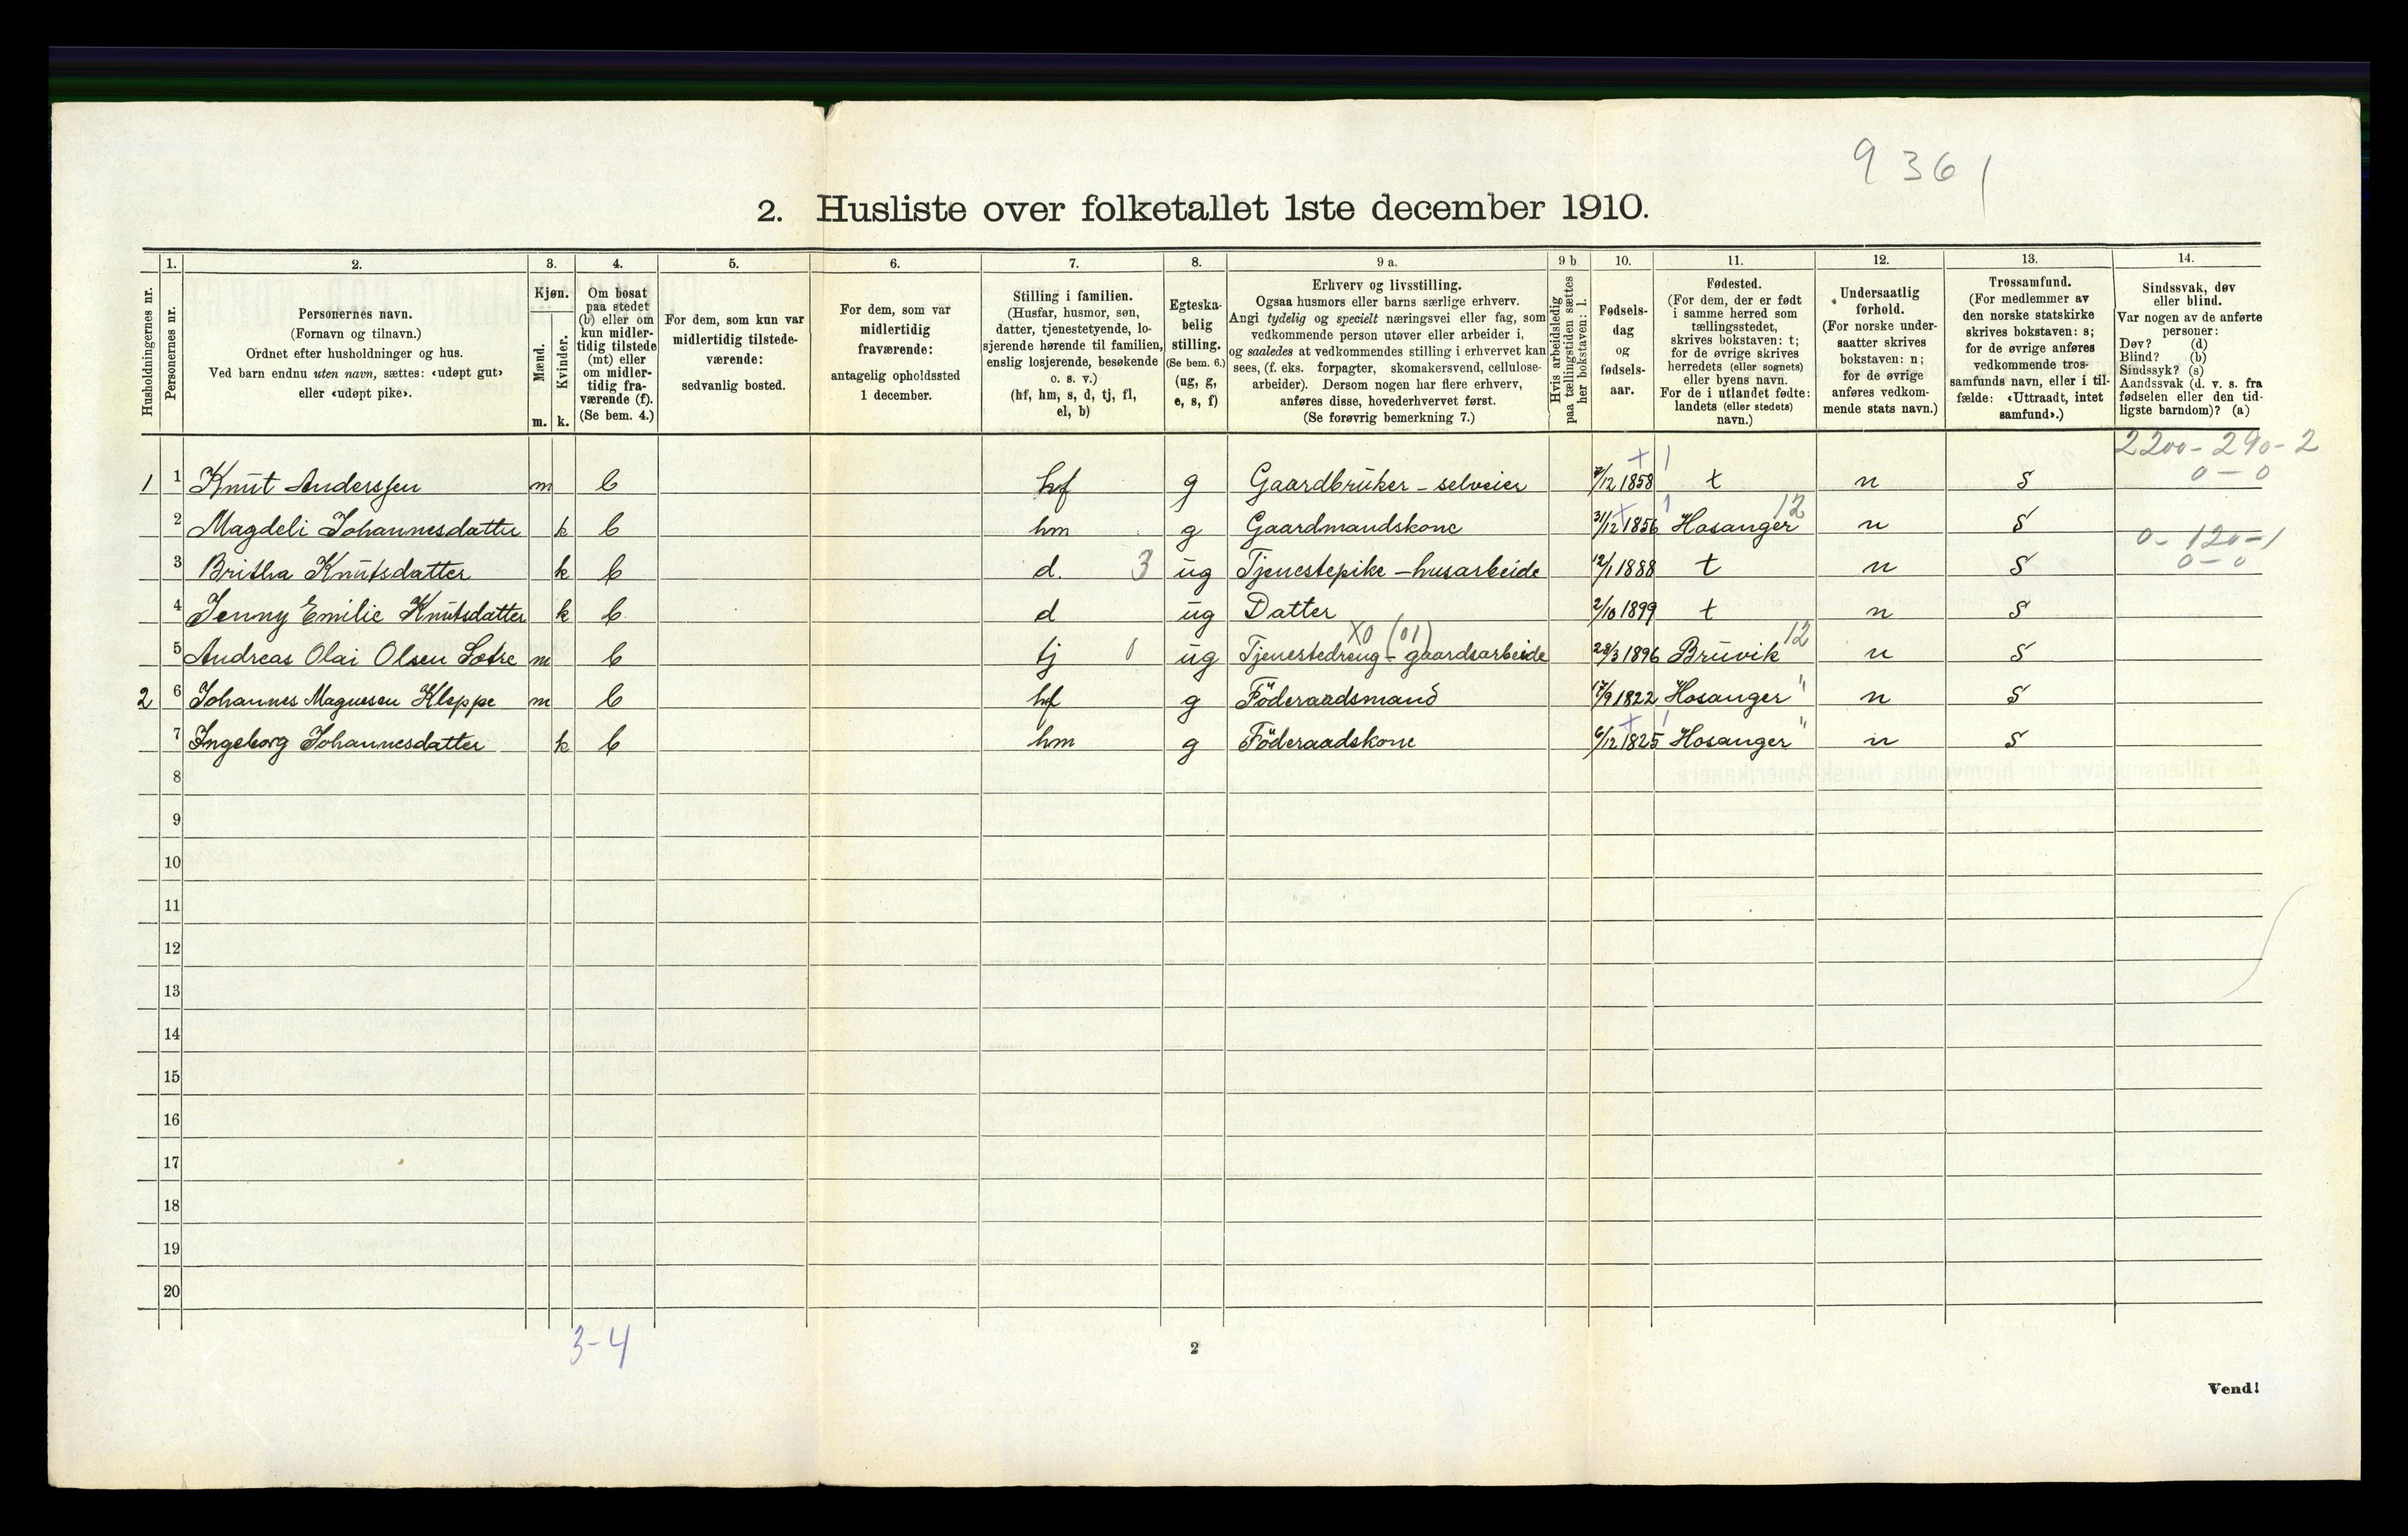 9 36 1
2. Husliste over folketallet 1ste december 1910.
Husholdningernes nr.
1.
Personernes nr.
2.
Personernes navn.
(Fornavn og tilnavn.)
Ordnet efter husholdninger og hus.
Ved barn endnu uten navn, sættes: «udøpt gut»
eller «udøpt pike».
3.
Kjøn.
Mænd.
Kvinder.
m. k.
4.
Om bosat
paa stedet
(b) eller om
kun midler-
tidig tilstede
(mt) eller
om midler-
tidig fra-
værende (f).
(Se bem. 4.)
5.
For dem, som kun var
midlertidig tilstede-
værende:
sedvanlig bosted.
6.
For dem, som var
midlertidig
fraværende:
antagelig opholdssted
1 december.
7.
Stilling i familien.
(Husfar, husmor, søn,
datter, tjenestetyende, lo-
sjerende hørende til familien,
enslig losjerende, besøkende
o. s. v.)
(hf, hm, s, d, tj, fl,
el, b)
8.
Egteska-
belig
stilling.
(Se bem. 6.)
(ug, g,
e, s, f)
9 a.
Erhverv og livsstilling.
Ogsaa husmors eller barns særlige erhverv.
Angi tydelig og specielt næringsvei eller fag, som
vedkommende person utøver eller arbeider i,
og saaledes at vedkommendes stilling i erhvervet kan
sees, (f. eks. forpagter, skomakersvend, cellulose-
arbeider). Dersom nogen har flere erhverv,
anføres disse, hovederhvervet først.
(Se forøvrig bemerkning 7.)
9 b.
Hvis arbeidsledig
paa tællingstiden sættes
her bokstaven: l.
10.
Fødsels-
dag
og
fødsels-
aar.
11.
Fødested.
(For dem, der er født
i samme herred som
tællingsstedet,
skrives bokstaven: t;
for de øvrige skrives
herredets (eller sognets)
eller byens navn.
For de i utlandet fødte:
landets (eller stedets)
navn.)
12.
Undersaatlig
forhold.
(For norske under-
saatter skrives
bokstaven: n;
for de øvrige
anføres vedkom-
mende stats navn.)
13.
Trossamfund.
(For medlemmer av
den norske statskirke
skrives bokstaven: s;
for de øvrige anføres
vedkommende tros-
samfunds navn, eller i til-
fælde: «Uttraadt, intet
samfund».)
14.
Sindssvak, døv
eller blind.
Var nogen av de anførte
personer:
Døv? (d)
Blind? (b)
Sindssyk? (s)
Aandssvak (d. v. s. fra
fødselen eller den tid-
ligste barndom)? (a)
2200-290-2
1 1 Knut Anderssen m b hf g Gaardbruker - selveier 7/12 1858 t n s 0-0
2 Magdeli Johannesdatter k b hm g Gaardmandskone 31/12 1856 Hosanger 12 n s
0-120-1
3 Britha Knutsdatter k b d. 3 ug Tjenestepike - husarbeide 12/1 1888 t n s 0-0
4 Jenny Emilie Knutsdatter k b d ug Datter 2/10 1899 t n s
X0 (01)
5 Andreas Olai Olsen m b tj 0 ug Tjenestedreng - gaardsarbeide 23/3 1896 Bruvik 12 n s
2 6 Johannes Magnesen Kleppe m b hf g Föderaadsmand 17/9 1822 Hosanger " n s
7 Ingeborg Johannesdatter k b hm g Föderaadskone 6/12 1825 Hosanger " n s
8
9
10
11
12
13
14
15
16
17
18
19
20
3-4
2
Vend!